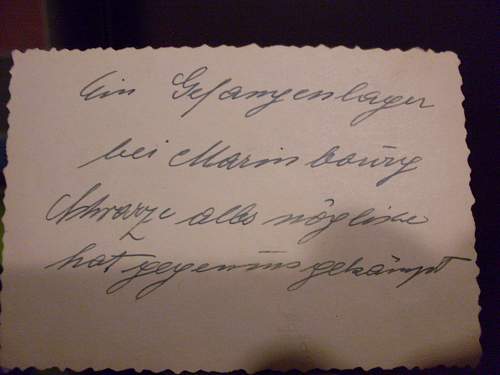 Ein Gefangenlager
bei Marinbourg
Schwarze alles mögliche
hat gegen uns gekämpft